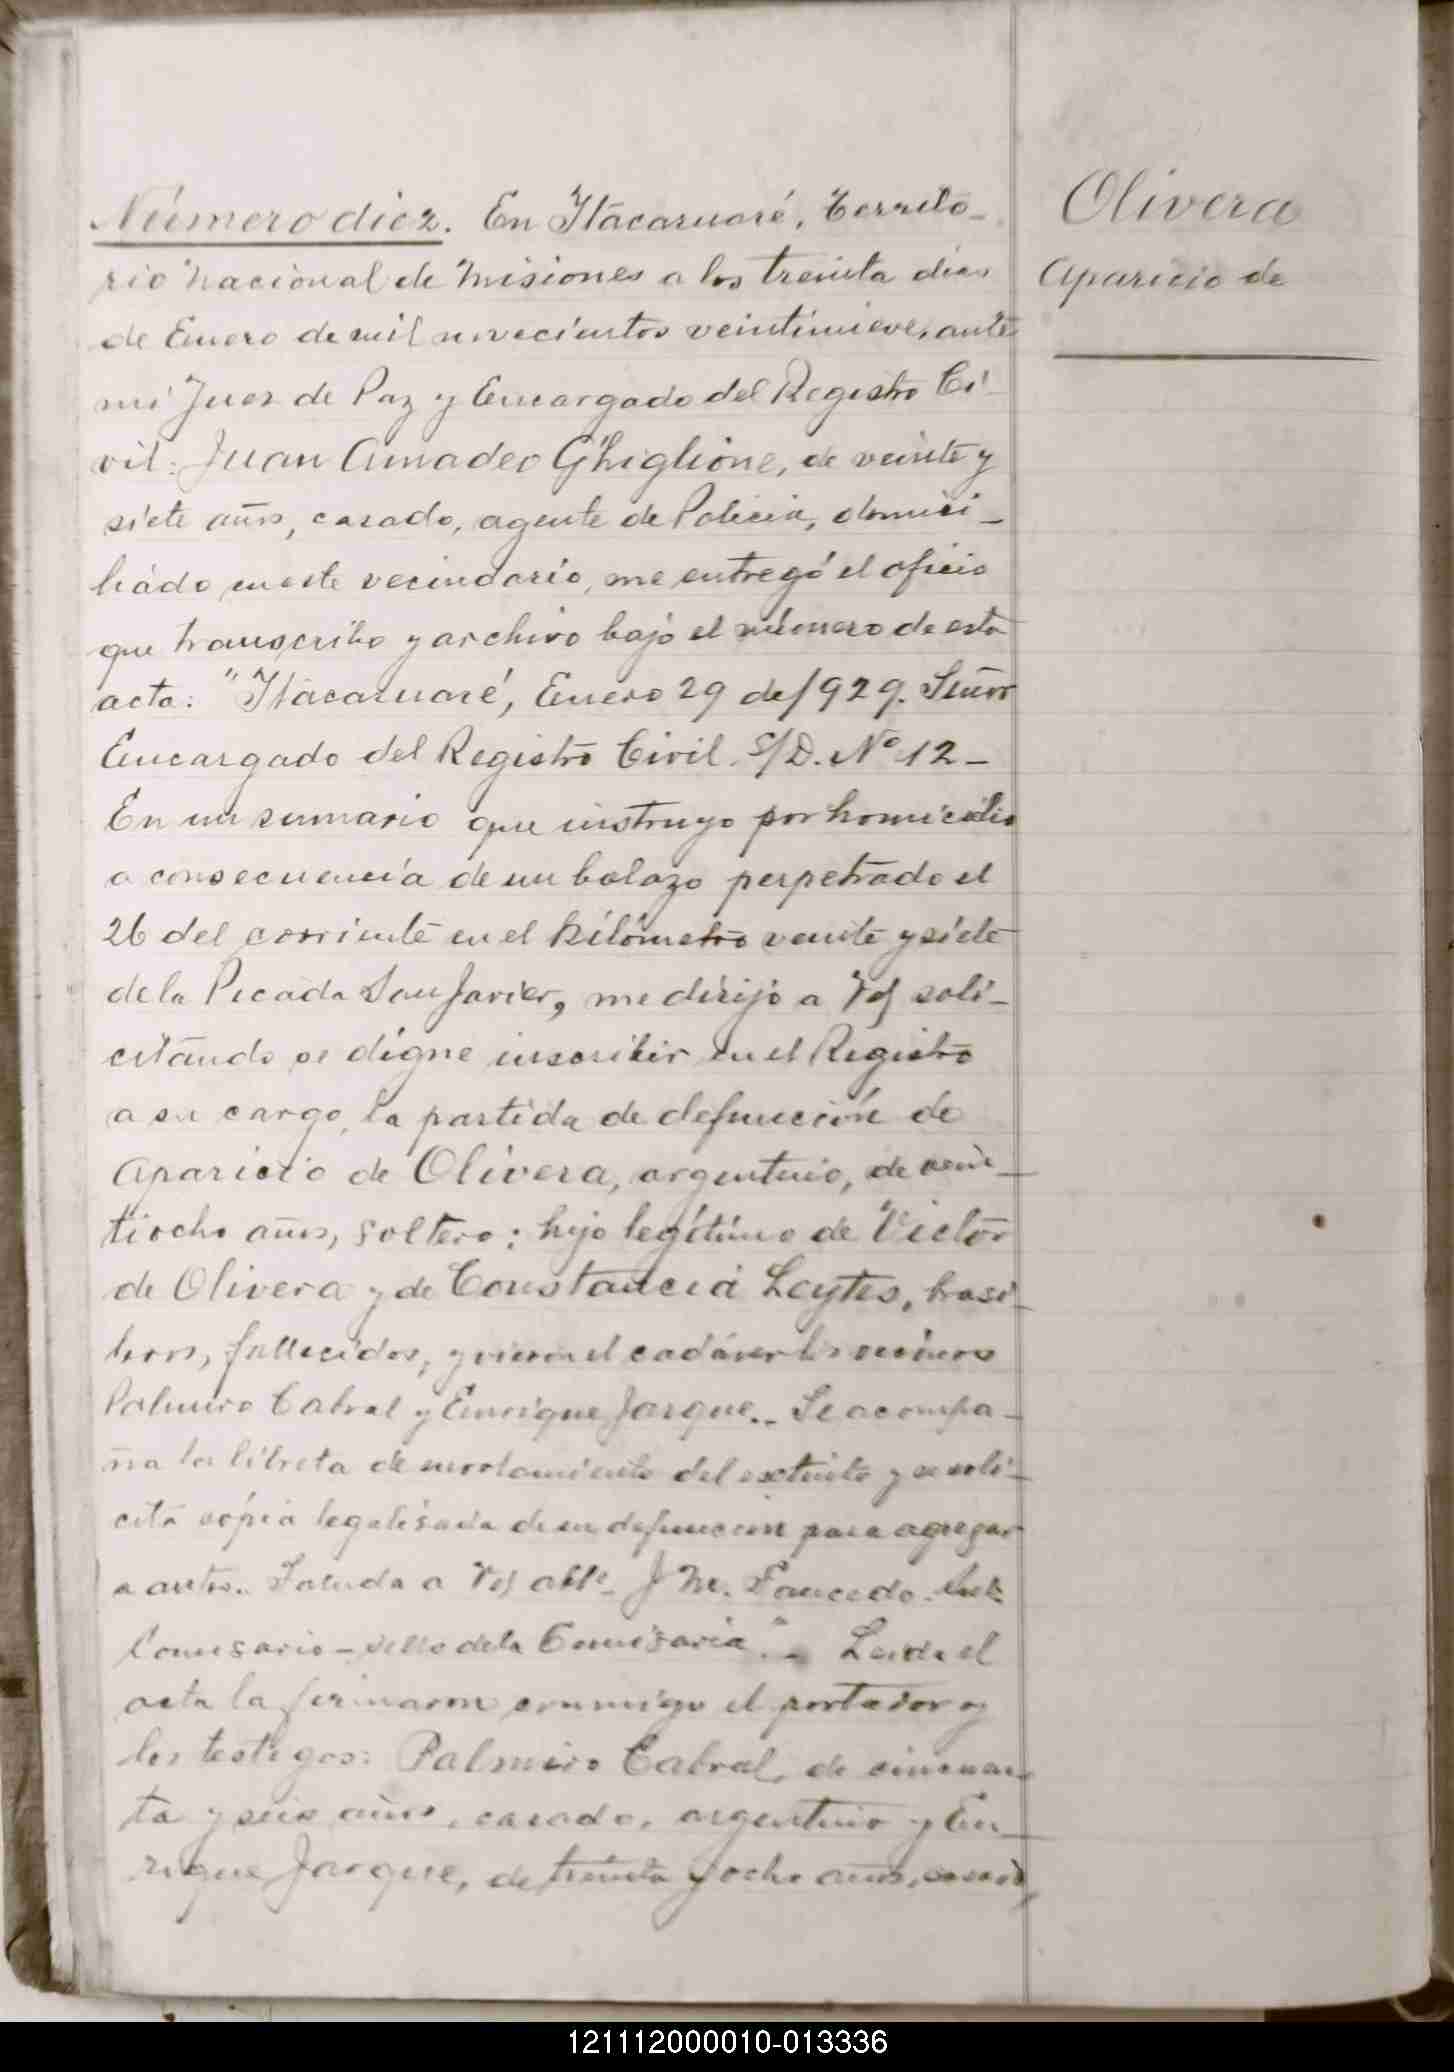 Número diez. En Itacaruaré, Territo-
rio Nacional de Misiones a los treinta dias
de Enero de mil novecientos veintinueve, ante
mi Juez de Paz y Encargado del Registro Ci-
vil: Juan Amadeo Ghiglione, de veinte y
siete años, casado, agente de Policia, domici-
liado en este vecindario, me entregó el oficio
que transcribo y archivo bajo el número de esta
acta: "Itacaruaré, Enero 29 de 1929. Señor
Encargado del Registro Civil. S/D. Nº 12-
En un sumario que instruyo por homicidio
a consecuencia de un balazo perpetrado el
26 del corriente en el kilómetro veinte y siete
de la Picada San Javier, me dirijo a Vd soli-
citando se digne inscribir en el Registro
a su cargo, la partida de defunción de
Aparicio de Olivera, argentino, de vein-
tiocho años, soltero; hijo legítimo de Victor
de Olivera y de Constancia Leytes, brasi-
leros, fallecidos, y vieron el cadáver los vecinos
Palmiro Cabral y Enrique Jarque.- Se acompa-
ña la libreta de enrolamiento del extinto y se soli-
cita cópia legalisada de su defuncion para agregar
a autos. Saluda a Vd atte- J M. Saucedo. Sub
Comisario - sello de la Comisaria".- Leida el
acta la firmaron conmigo el portador y
los testigos: Palmiro Cabral, de cincuen-
ta y seis años, casado, argentino y En-
rique Jarque, de treinta y ocho años, casado,
Olivera
Aparicio de
121112000010-013336